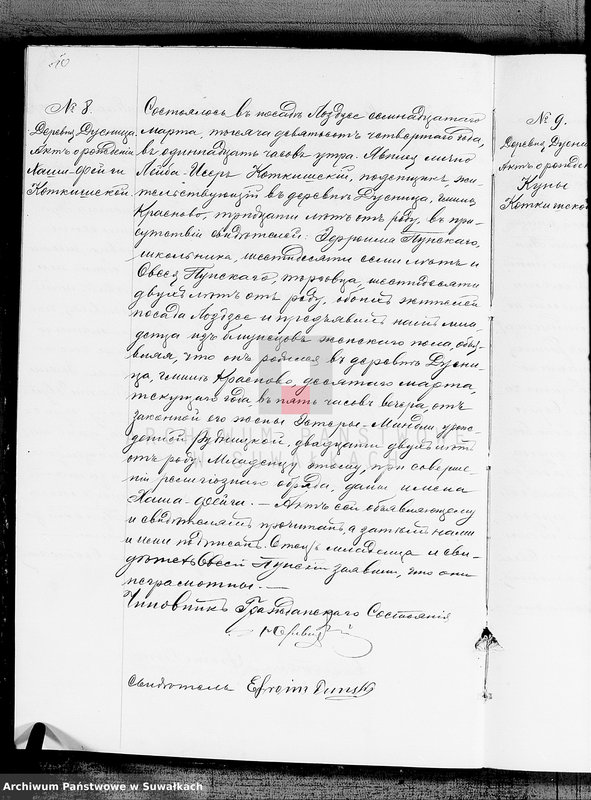 10
№ 8.
Деревня Дусница.
Актъ о рожденіи
Хаши-Фейги
Коткишской.
Состоялось въ посадѣ Лоздзее семнадцатаго
марта, тысяча девятьсотъ четвертаго года,
въ одиннадцать часовъ утра. Явился лично
Лейба-Исеръ Коткишскій, поденщикъ, жи-
тельствующій въ деревнѣ Дусница, гмины
Красново, тридцати лѣтъ отъ роду, въ при-
сутствіи свидѣтелей: Эфроима Пунскаго,
школьника, шестидесяти семи лѣтъ и
Овсея Пунскаго, торговца, шестидесяти
двухъ лѣтъ отъ роду, обоихъ жителей
посада Лоздзее и предъявилъ намъ мла-
денца изъ близнецовъ женскаго пола, объя-
вляя, что онъ родился въ деревнѣ Дусни-
ца, гмины Красново, десятаго марта,
текущаго года въ пять часовъ вечера, отъ
законной его жены Эстеры-Миндли урож-
денной двадцати двухъ лѣтъ
отъ роду. Младенцу этому, при соверше-
ніи религіознаго обряда, дано имена
Хаша-Фейга. — Актъ сей объявляющему
и свидѣтелямъ прочитанъ, а затѣмъ нами
и ими подписанъ. Отецъ младенца и сви-
дѣтель Овсей Пунскій заявили, что они
неграмотны. —
Чиновникъ Гражданскаго Состоянія
Свидѣтель Efroim Punski
№ 9.
Деревня Дусни
Актъ о рожде
Куны
Коткишской
ARCHIWUM PAŃSTWOWE
W SUWAŁKACH
Archiwum Państwowe w Suwałkach